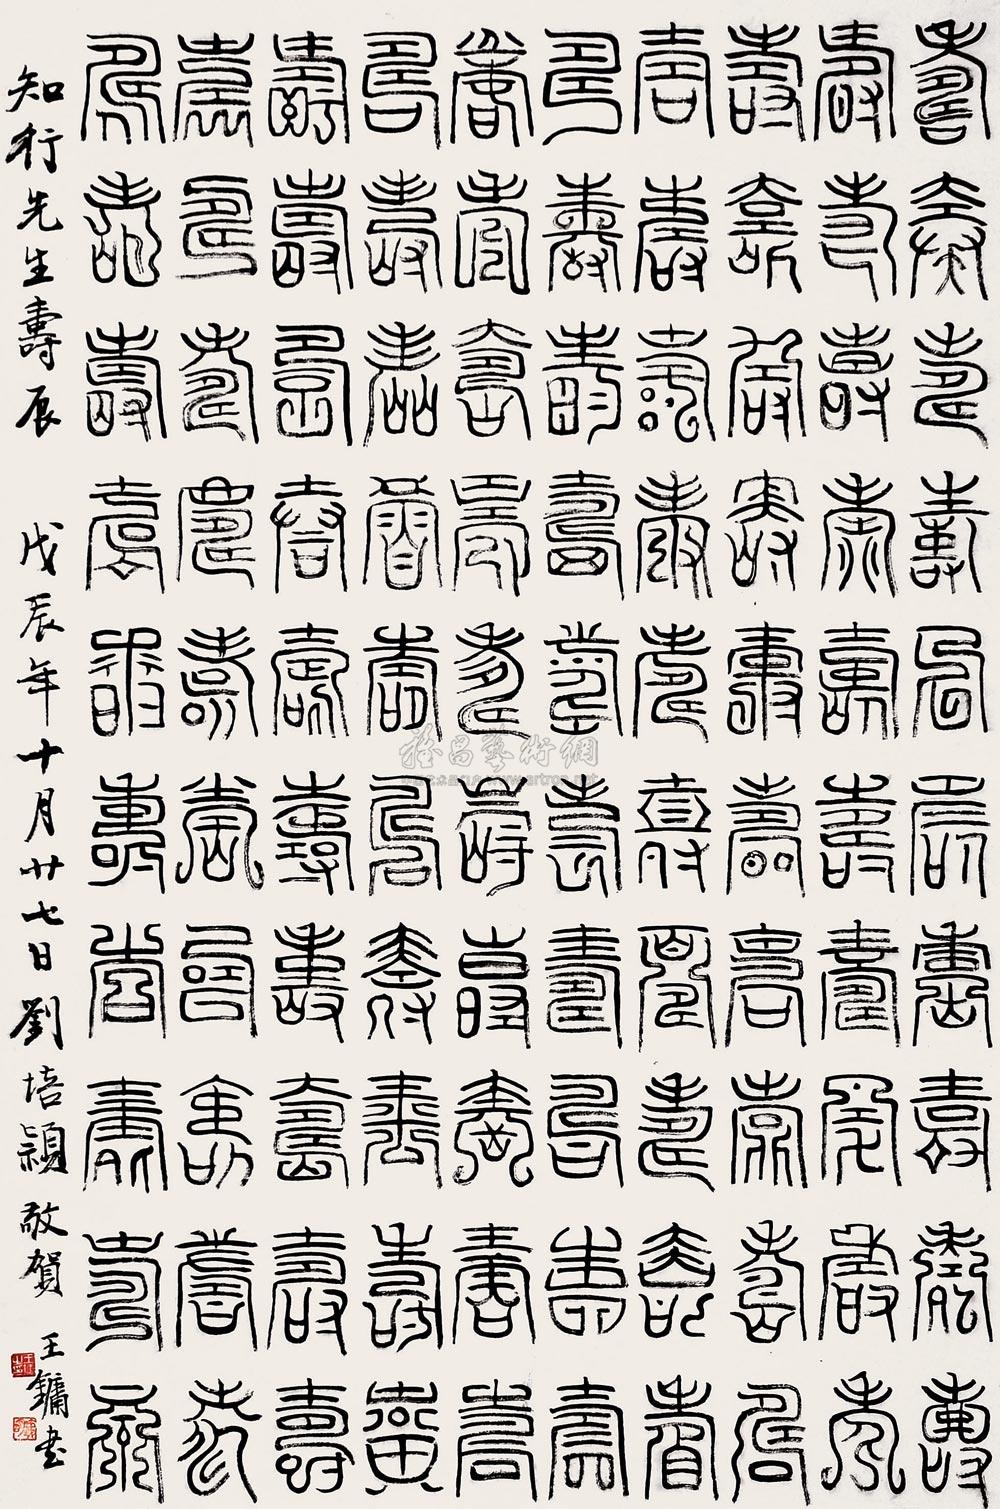 壽壽壽壽壽壽壽壽壽壽
壽壽壽壽壽壽壽壽壽壽
壽壽壽壽壽壽壽壽壽壽
壽壽壽壽壽壽壽壽壽壽
壽壽壽壽壽壽壽壽壽壽
壽壽壽壽壽壽壽壽壽壽
壽壽壽壽壽壽壽壽壽壽
壽壽壽壽壽壽壽壽壽壽
壽壽壽壽壽壽壽壽壽壽
壽壽壽壽壽壽壽壽壽壽
知行先生壽辰 戊辰年十月廿七日劉培穎敬賀 王鏞書
雅昌藝術網
www.artron.net